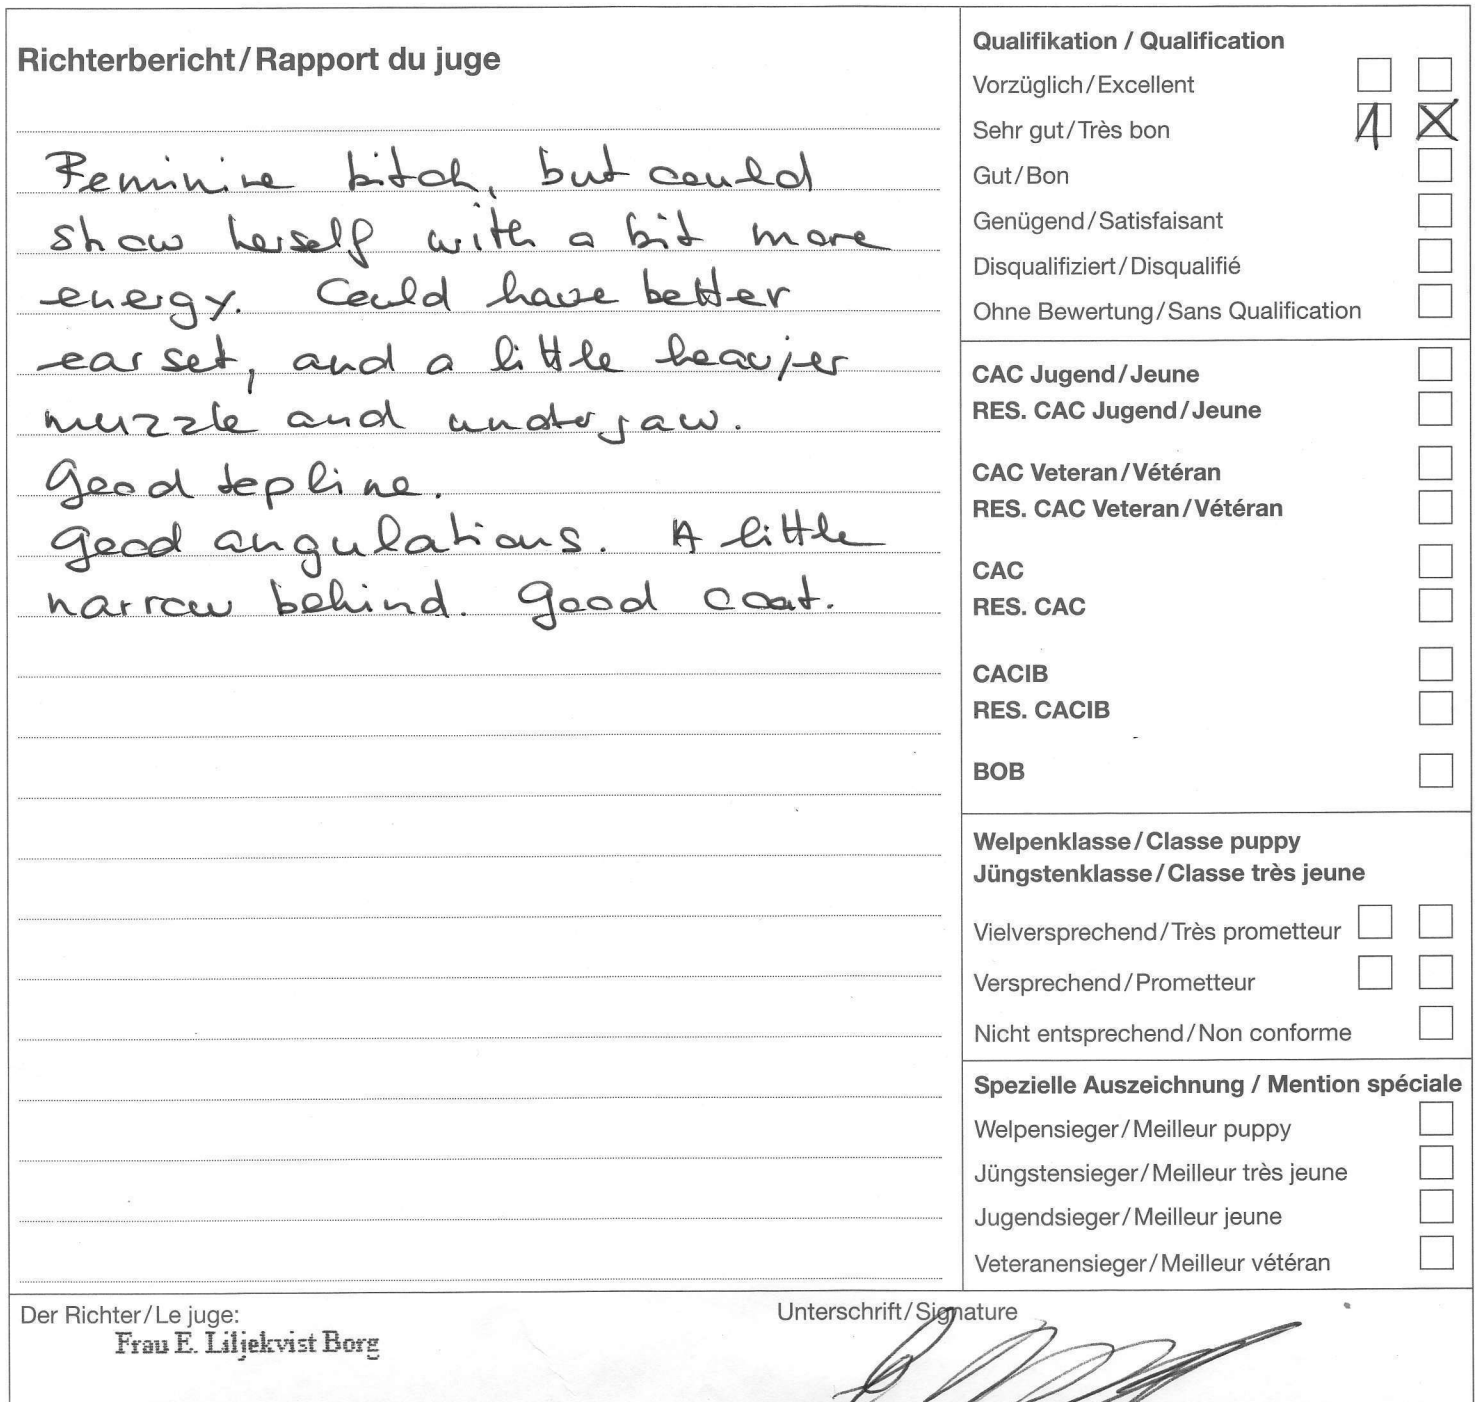 Richterbericht/Rapport du juge
Feminine bitch, but could
show herself with a bit more
energy. Could have better
ear set, and a little heavjer
muzzle and underjaw.
Good topline.
Good angulations. A little
narrow behind. Good coat.
Qualifikation / Qualification
Vorzüglich/Excellent
Sehr gut/Très bon 1 X
Gut/Bon
Genügend/Satisfaisant
Disqualifiziert/Disqualifié
Ohne Bewertung/Sans Qualification
CAC Jugend/Jeune
RES. CAC Jugend/Jeune
CAC Veteran/Vétéran
RES. CAC Veteran/Vétéran
CAC
RES. CAC
CACIB
RES. CACIB
BOB
Welpenklasse/Classe puppy
Jüngstenklasse/Classe très jeune
Vielversprechend/Très prometteur
Versprechend/Prometteur
Nicht entsprechend/Non conforme
Spezielle Auszeichnung / Mention spéciale
Welpensieger/Meilleur puppy
Jüngstensieger/Meilleur très jeune
Jugendsieger/Meilleur jeune
Veteranensieger/Meilleur vétéran
Der Richter/Le juge:
Frau E. Liljekvist Borg
Unterschrift/Signature